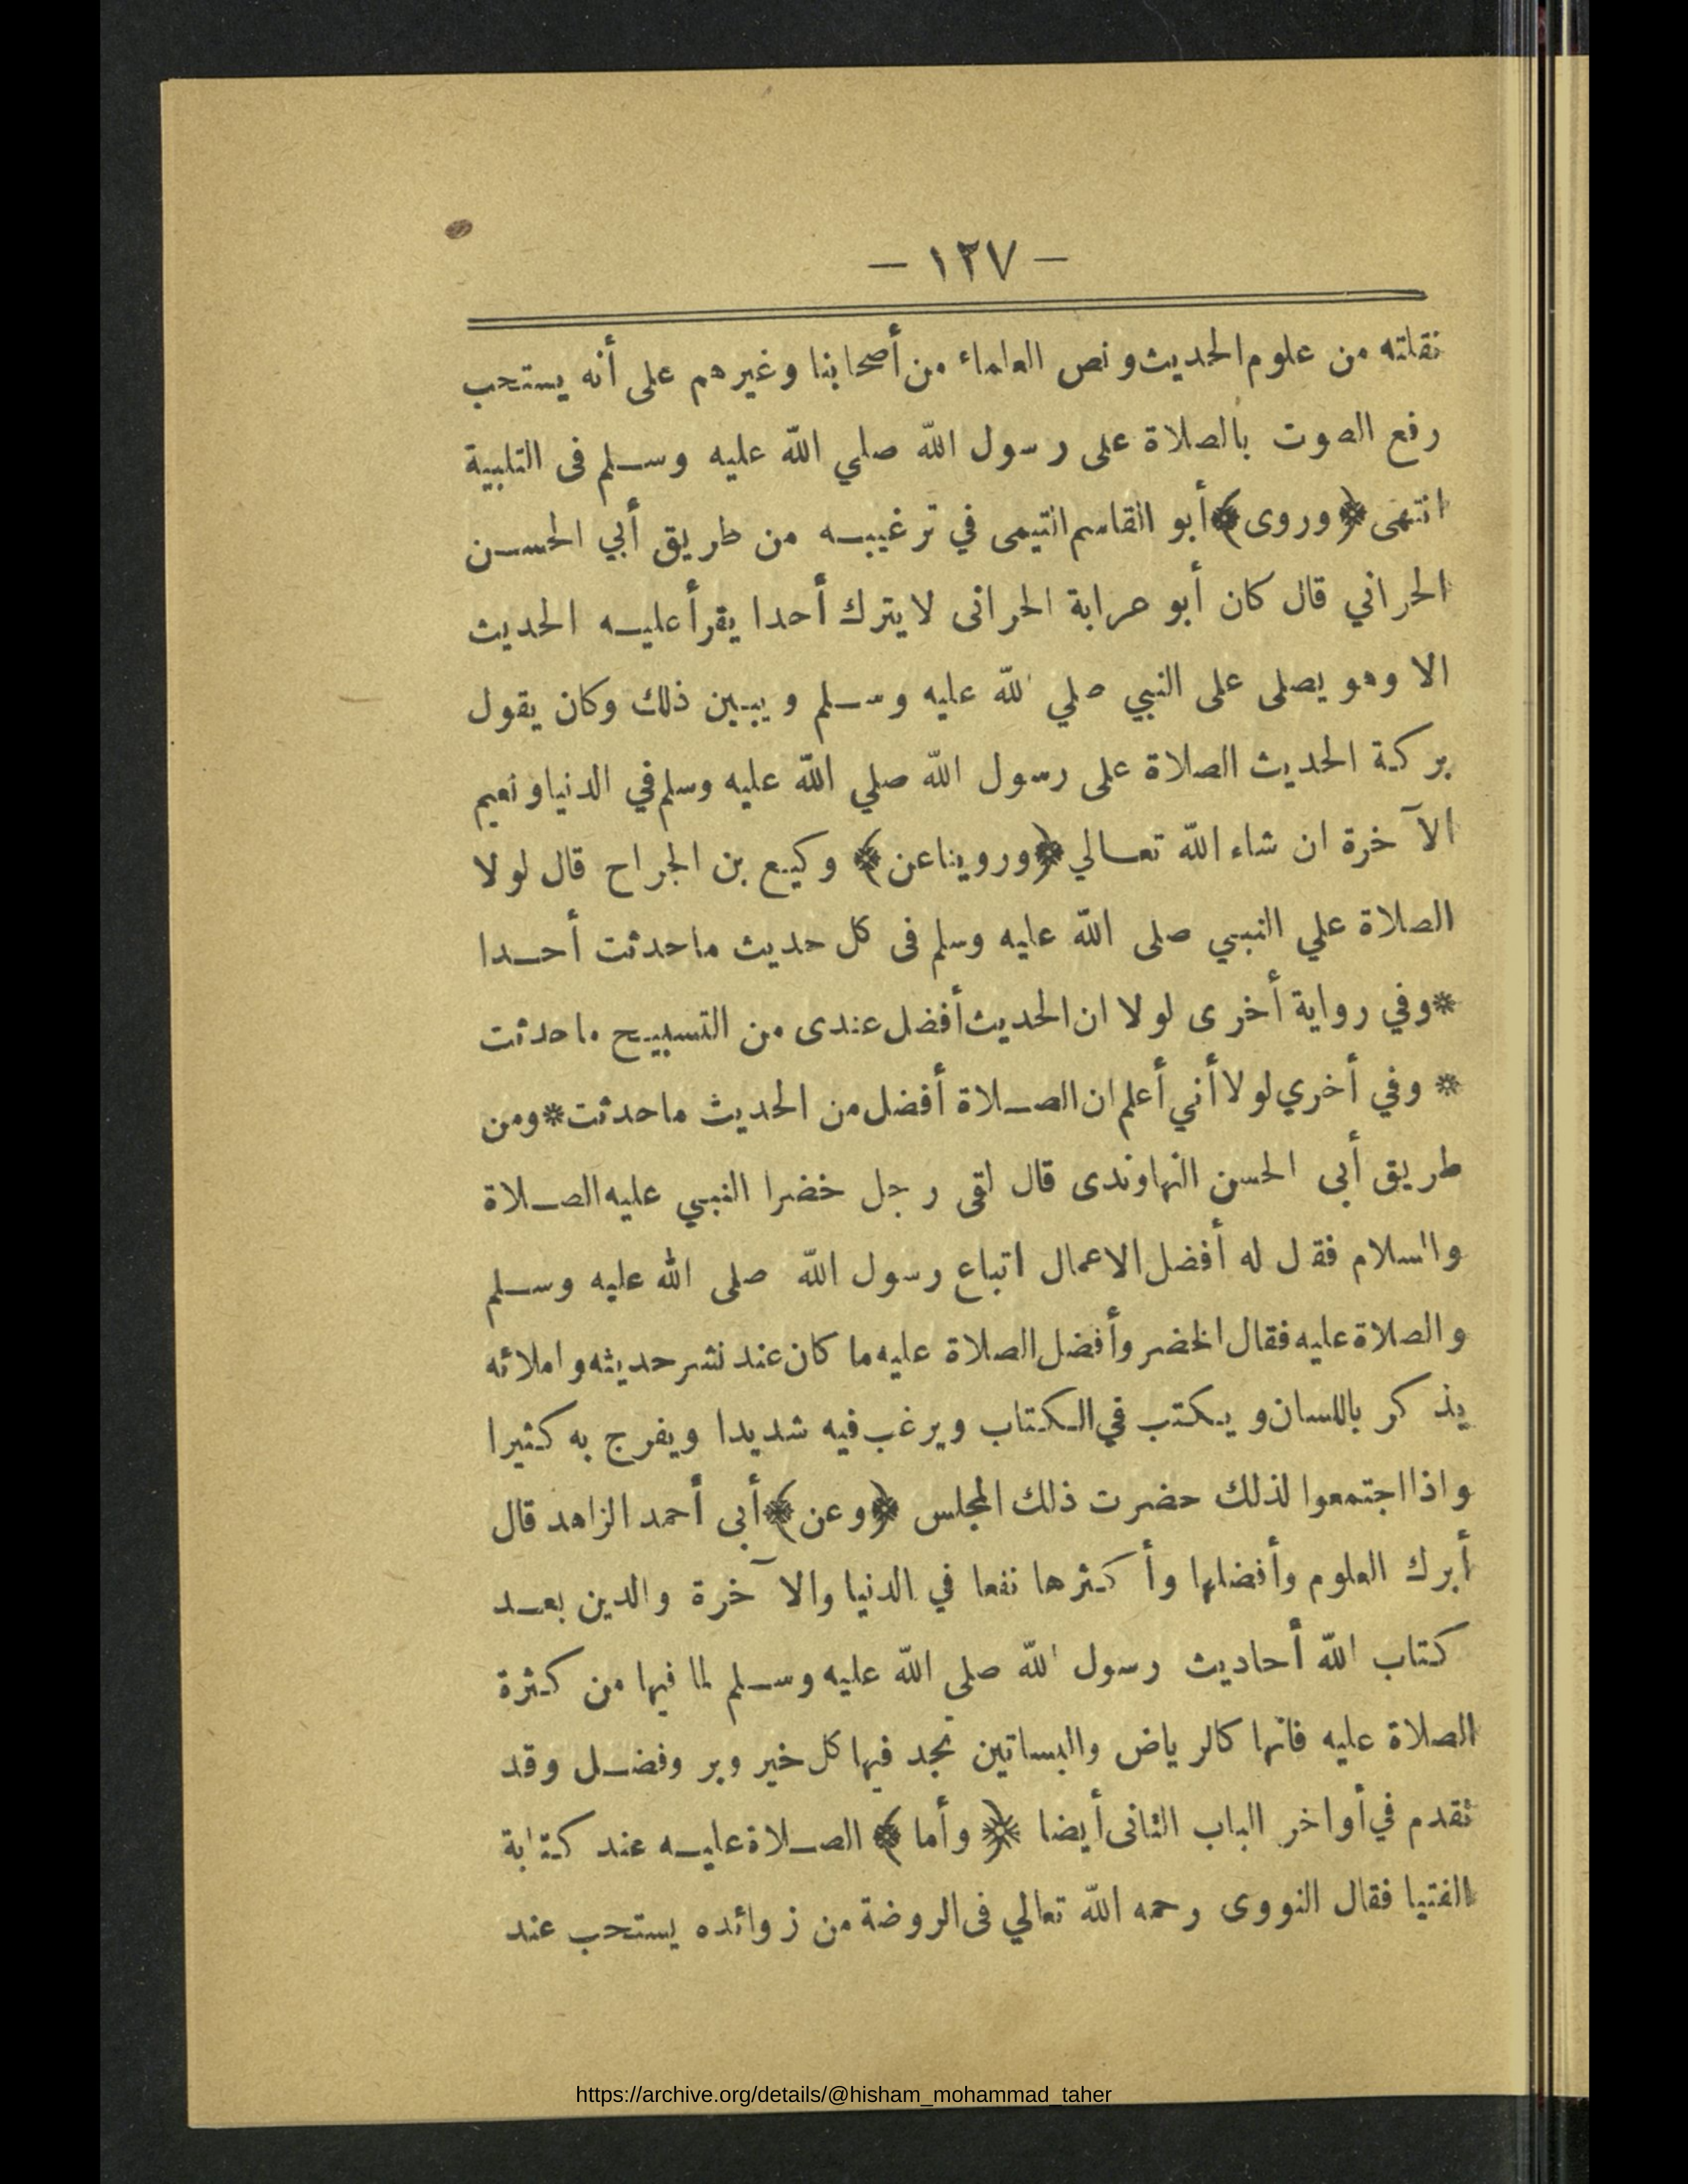 — ١٢٧ —
نقلته من علوم الحديث ونص العلماء من أصحابنا وغيرهم على أنه يستحب
رفع الصوت بالصلاة على رسول الله صلي الله عليه وسلم فى التلبية
انتهى ﴿وروى﴾ أبو القاسم التيمى في ترغيبه من طريق أبي الحسن
الحراني قال كان أبو عرابة الحرانى لا يترك أحدا يقرأ عليه الحديث
الا وهو يصلى على النبي صلي الله عليه وسلم ويبين ذلك وكان يقول
بركة الحديث الصلاة على رسول الله صلي الله عليه وسلم في الدنيا ونعيم
الآخرة ان شاء الله تعالي ﴿وروينا عن﴾ وكيع بن الجراح قال لولا
الصلاة علي النبي صلى الله عليه وسلم فى كل حديث ما حدثت أحدا
* وفي رواية أخرى لولا ان الحديث أفضل عندى من التسبيح ما حدثت
* وفي أخري لولا أني أعلم ان الصلاة أفضل من الحديث ما حدثت * ومن
طريق أبى الحسن النهاوندى قال لقى رجل خضرا النبي عليه الصلاة
والسلام فقل له أفضل الاعمال اتباع رسول الله صلى الله عليه وسلم
والصلاة عليه فقال الخضر وأفضل الصلاة عليه ما كان عند نشر حديثه واملائه
يذكر باللسان ويكتب في الكتاب ويرغب فيه شديدا ويفرج به كثيرا
واذا اجتمعوا لذلك حضرت ذلك المجلس ﴿وعن﴾ أبى أحمد الزاهد قال
أبرك العلوم وأفضلها وأكثرها نفعا في الدنيا والآخرة والدين بعد
كتاب الله أحاديث رسول الله صلى الله عليه وسلم لما فيها من كثرة
الصلاة عليه فانها كالرياض والبساتين تجد فيها كل خير وبر وفضل وقد
تقدم في أواخر الباب الثانى أيضا ﴿وأما﴾ الصلاة عليه عند كتابة
الفتيا فقال النووى رحمه الله تعالي فى الروضة من زوائده يستحب عند
https://archive.org/details/@hisham_mohammad_taher